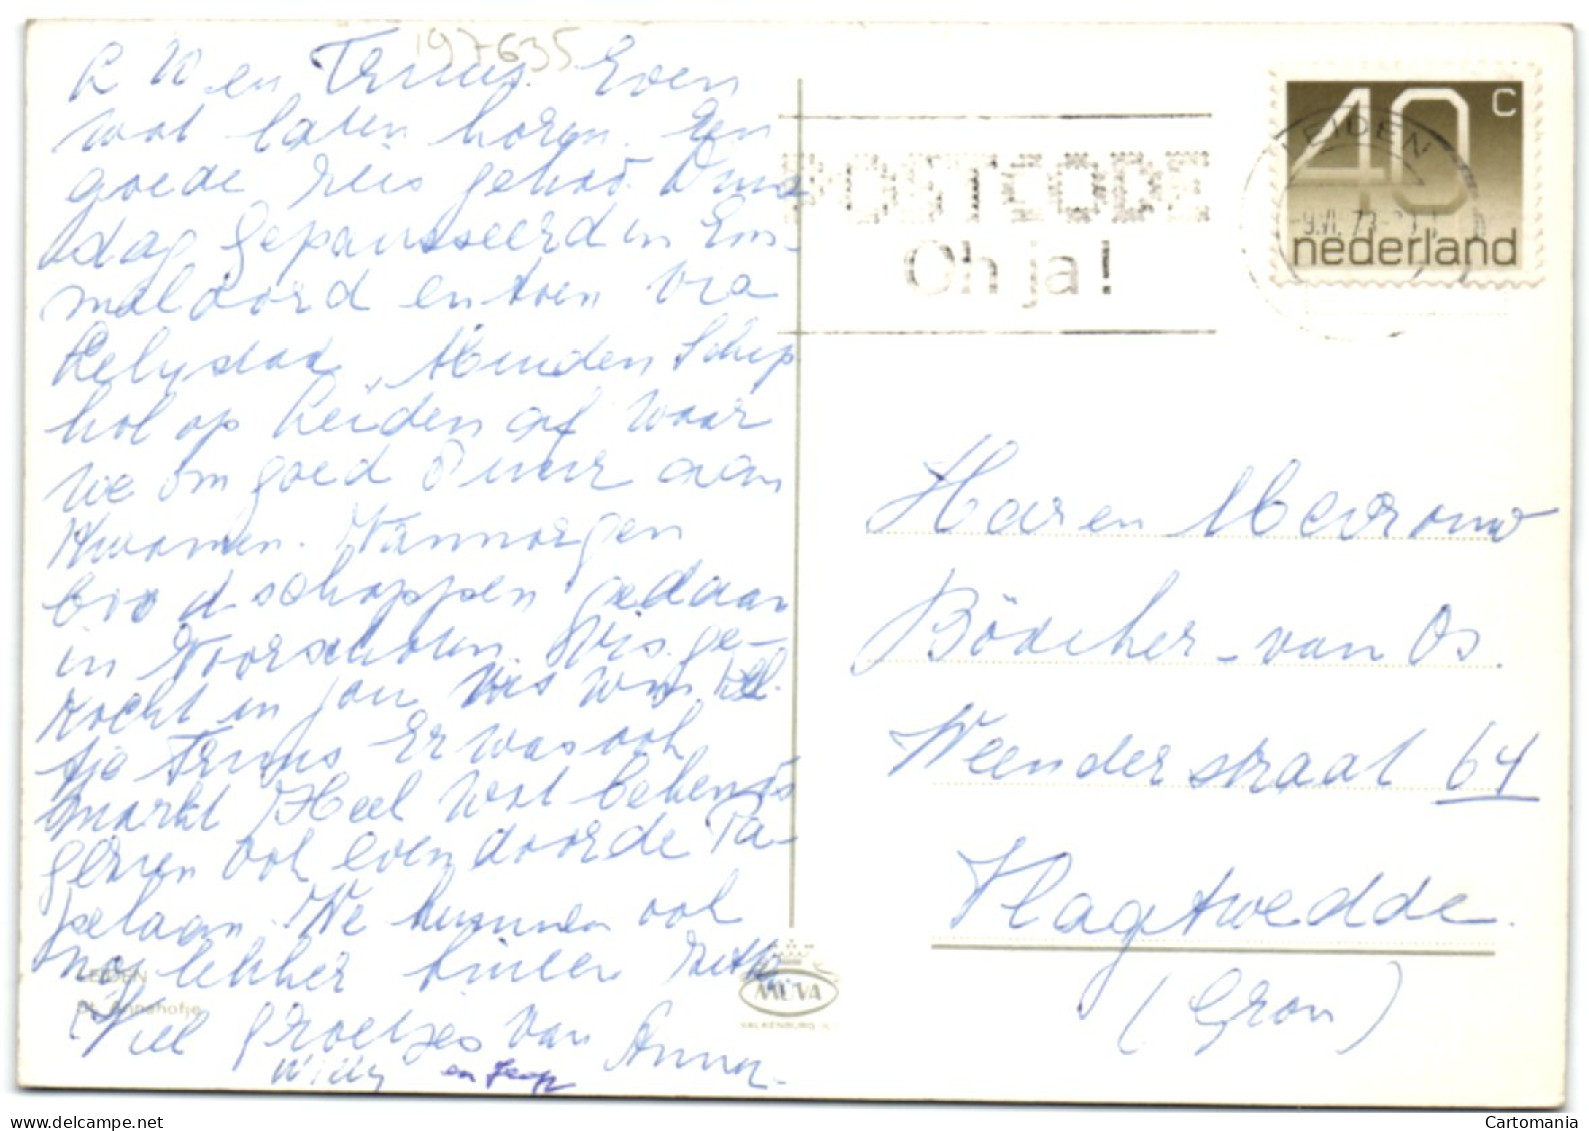 197635
L W en Truus. Even
wat laten horen. Een
goede reis gehad. Dins
dag gepauseerd in Em-
maloord en toen via
Lelystad, Muiden Schip
hol op Leiden af waar
we om goed 5 uur aan
kwamen. Vanmorgen
boodschappen gedaan
in Voorschoten. Vis ge-
kocht en jou vis
tje Truus Er was ook
markt Heel wat bekends
gezien ook even door de Ta-
pelaan. We kunnen ook
nog lekker buiten zitten.
Veel groetjes van Anna
Willy en Jaap
LEIDEN
St. Annahofje
MUVA
VALKENBURG
POSTCODE
Oh ja!
LEIDEN
40 c
nederland
H ar en Mevrouw
Bödeker - van Os.
Weenderstraat 64
Vlagtwedde.
(Gron)
Cartomania